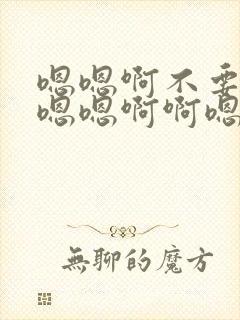 嗯嗯啊不要
嗯嗯啊啊嗯
無聊的魔方